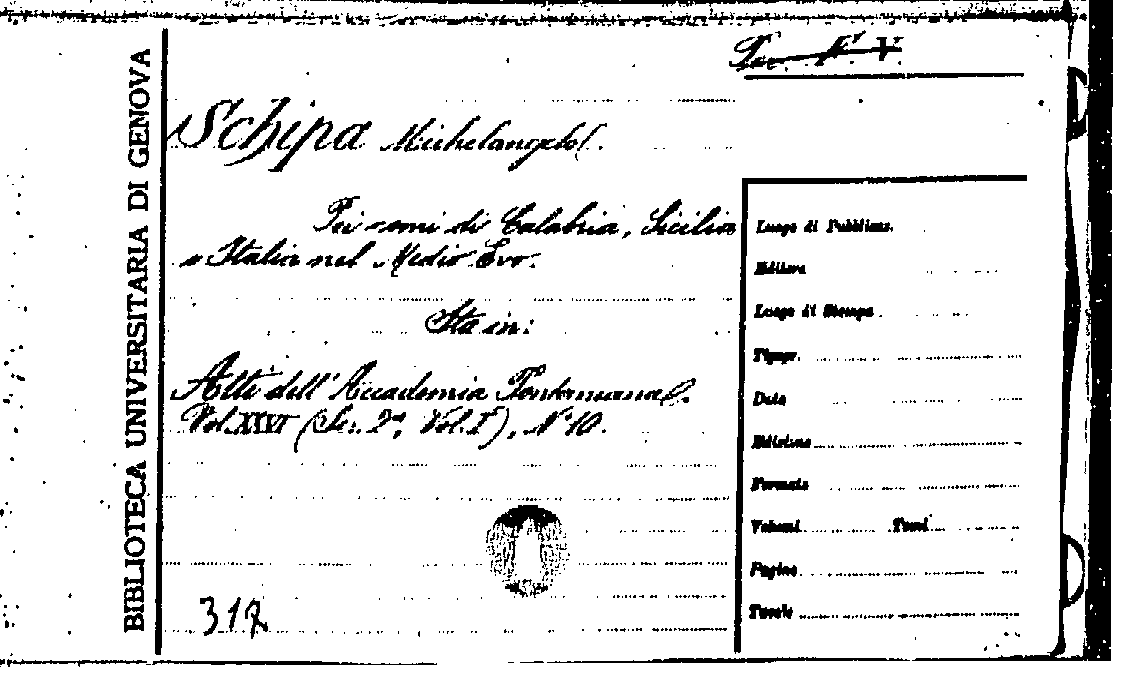 BIBLIOTECA UNIVERSITARIA DI GENOVA
Schipa Michelangelo.
Pei nomi di Calabria, Sicilia
e Italia nel Medio Evo.
Sta in:
Atti dell'Accademia Pontaniana.
Vol. XXVI (Ser. 2ª, Vol. I), Nº 10.
317
Luogo di Pubblicaz.
Editore
Luogo di Stampa
Tipogr.
Data
Edizione
Formato
Volumi Tomi
Pagine
Tavole